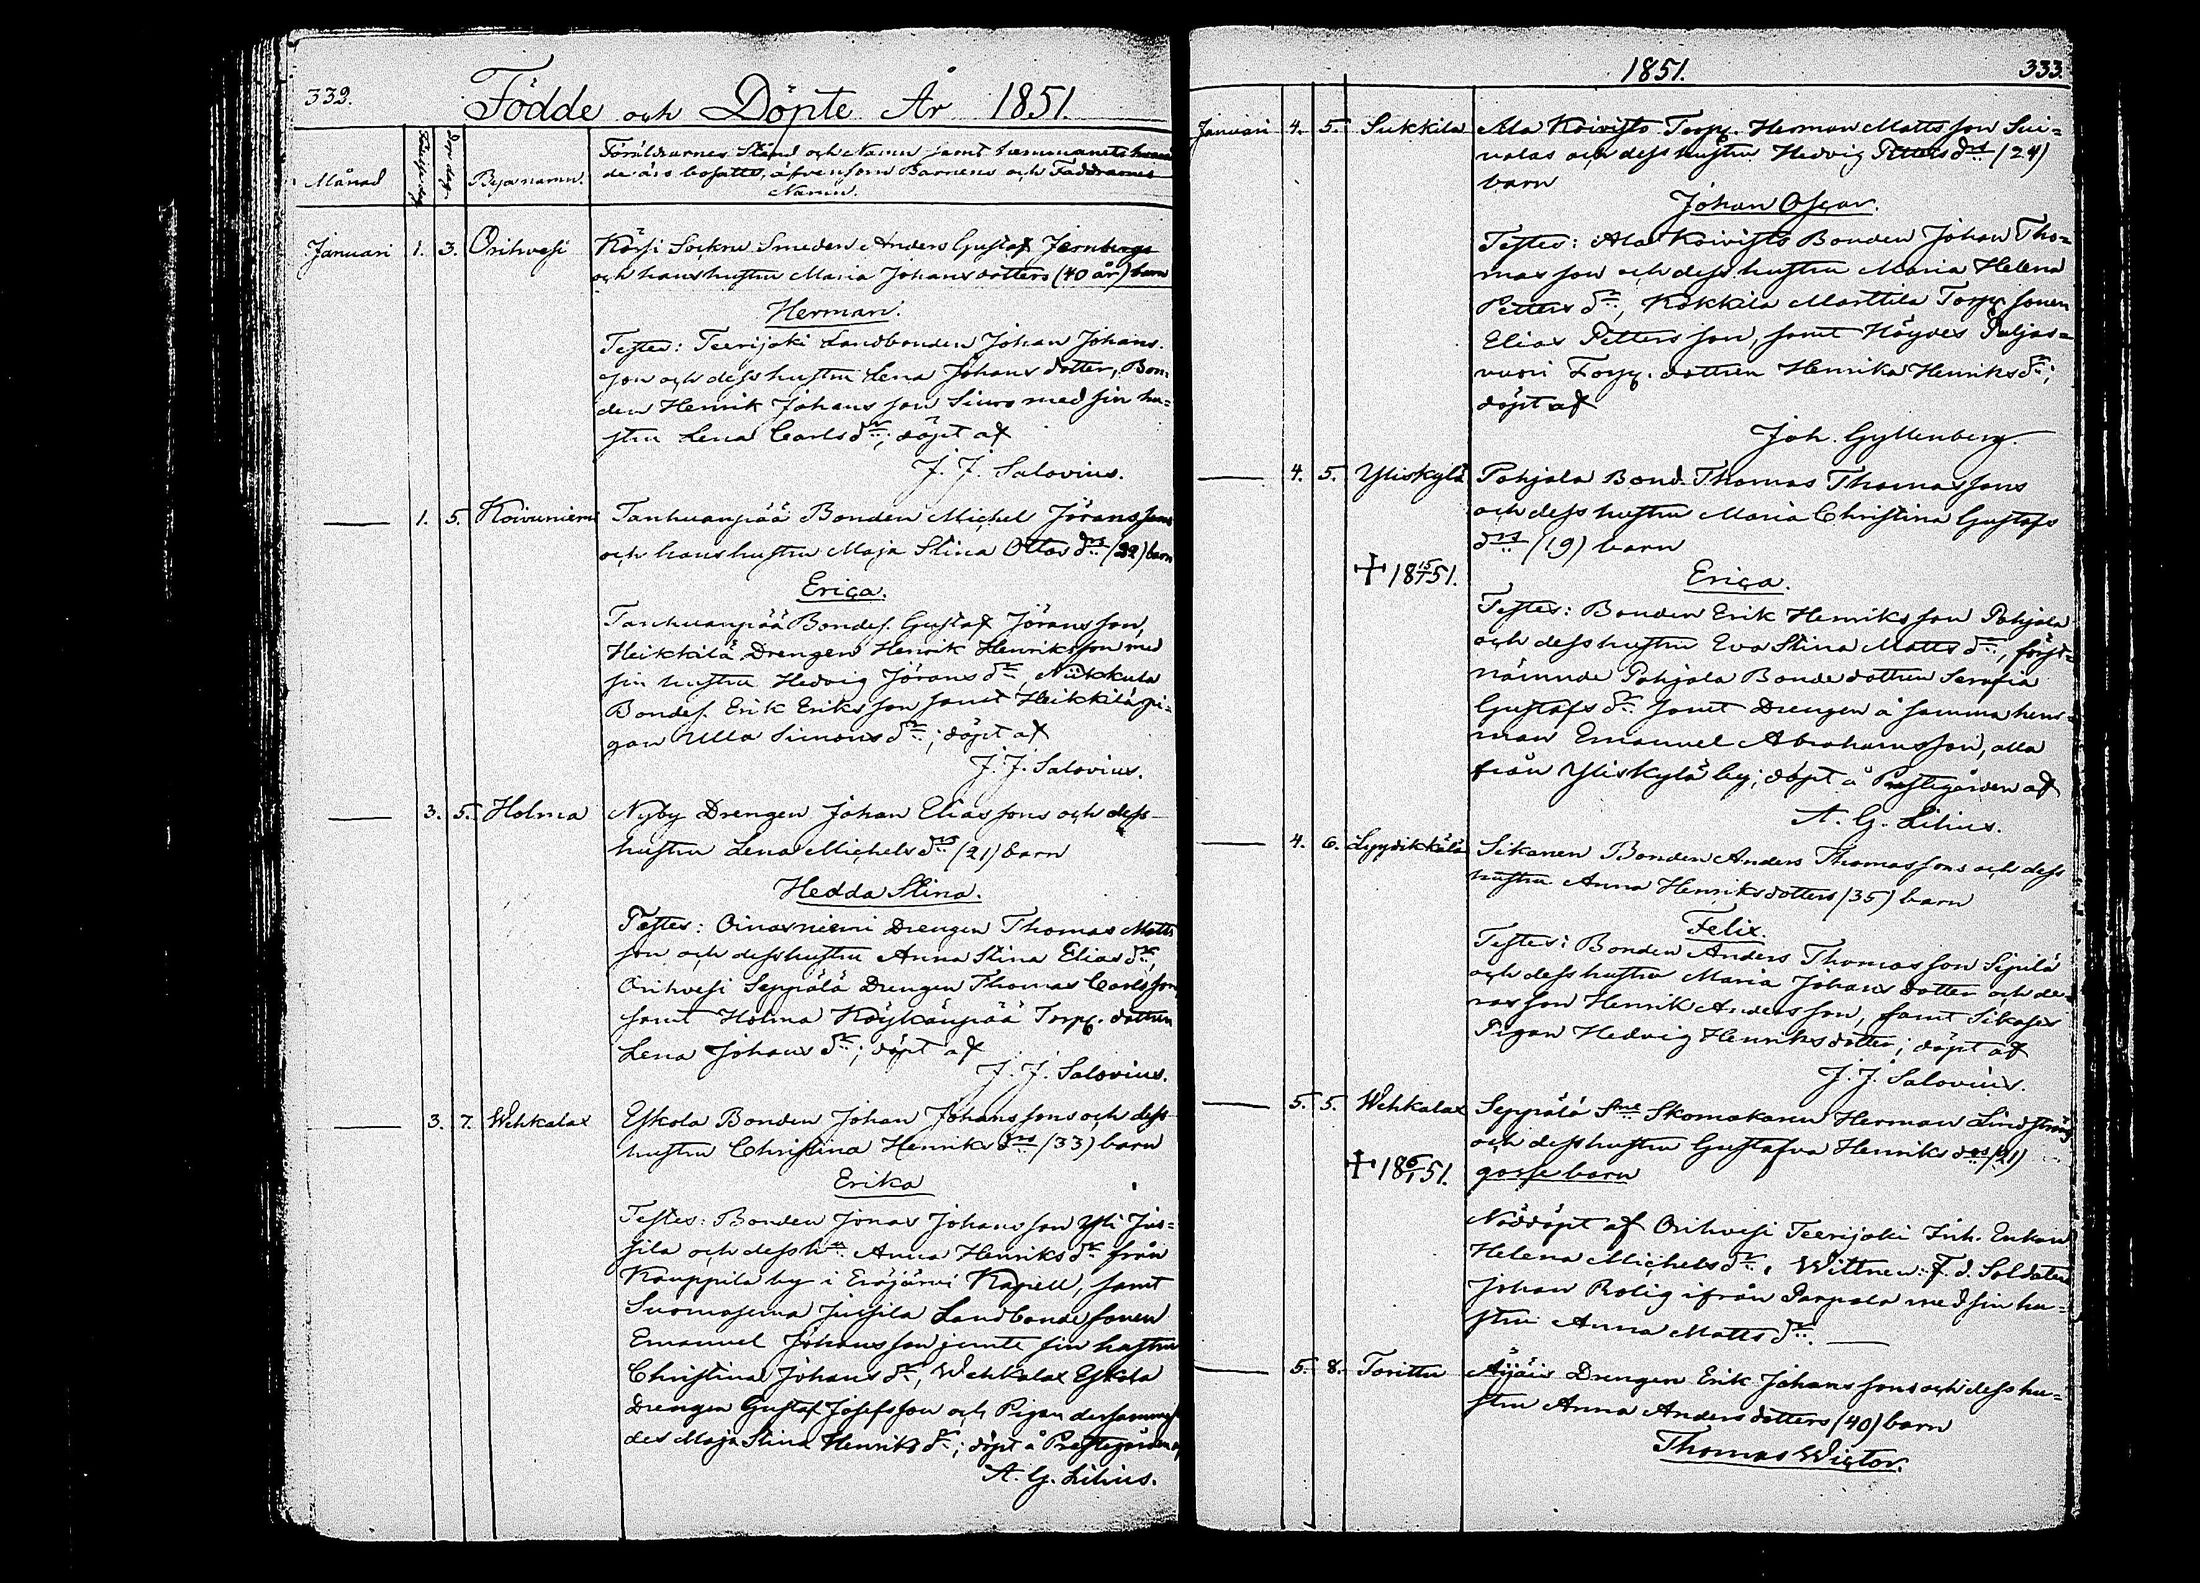 332.
Födde och Döpte År 1851.
Månad
Byanamn.
Föräldrarnes Stånd och Namn samt hemmanets hvar
de äro bosatte, äfvensom Barnens och Faddrarnes
Namn.
Januari 1. 3. Orihvesi Körsi Sockne Smeden Anders Gustaf Jernbergs
och hans hustru Maria Johans dotters (40 år) barn
Herman.
Testes: Teerijoki Landbonden Johan Johans-
son och dess hustru Lena Johans dotter, Bon-
den Henrik Johansson Siuro med sin hu-
stru Lena Carls dr; döpt af
J. J. Salovius.
1. 5. Koivuniemi Tanhuanpää Bonden Michel Jöranssons
och hans hustru Maja Stina Ottos drs (22) barn
Erica.
Tanhuanpää Bondes. Gustaf Göransson,
Heikkilä Drengen Henrik Henriksson med
sin hustru Hedvig Jörans dr, Niikkula
Bondes. Erik Eriksson samt Heikkilä pi-
gan Ulla Simons dr; döpt af
J. J. Salovius.
3. 5. Holma Nyby Drengen Johan Eliassons och dess
hustru Lena Michels drs (21) barn
Hedda Stina.
Testes: Oinasniemi Drengen Thomas Matts
son och dess hustru Anna Stina Elias dr,
Orihvesi Seppälä Drengen Thomas Carlsson,
samt Holma Köykänpää Torp. dottren
Lena Johans dr; döpt af
J. J. Salovius.
3. 7. Wehkalax Eskola Bonden Johan Johanssons och dess
hustru Christina Henriks drs (33) barn
Erika
Testes: Bonden Jonas Johansson Yli Jus-
sila och dess hu Anna Henriks dr från
Kauppila by i Eräjärvi Kapell, samt
Suomasema Jussila Landbonde sonen
Emanuel Johansson jemte sin hustru
Christina Johans dr, Wehkalax Eskola
Drengen Gustaf Josefsson och Pigan dersammas-
des Maja Stina Henriks dr; döpt å Prestegården af
A. G. Lilius.
1851. 333.
Januari 4. 5. Sukkila Ala Koivisto Torp. Herman Mattsson Sui-
nalas och dess hustru Hedvig Petters drs (24)
barn
Johan Oscar.
Testes: Ala Koivisto Bonden Johan Tho-
masson och dess hustru Maria Helena
Petters dr, Kokkila Marttila Torp. sonen
Elias Pettersson, samt Höydes Paljas-
vuori Torp. dottren Henrika Henriks dr;
döpt af
Joh. Gyllenberg.
4. 5. Yliskylä Pohjola Bond. Thomas Thomassons
och dess hustru Maria Christina Gustafs
drs (19) barn
+ 18 15/1 51.
Erica.
Testes: Bonden Erik Henriksson Pohjola
och dess hustru Eva Stina Matts dr, först-
nämnde Pohjola Bonde dottren Serafia
Gustafs dr samt Drengen å samma hem-
man Emanuel Abrahamsson, alla
från Yliskylä by; döpt å Prestegården af
A. G. Lilius.
4. 6. Lyydikkälä Sikanen Bonden Anders Thomassons och dess
hustru Anna Henriksdotters (35) barn
Felix.
Testes: Bonden Anders Thomasson Sipilä
och dess hustru Maria Johans dotter och de-
ras son Henrik Andersson, samt Sikases
Pigan Hedvig Henriksdotter; döpt af
J. J. Salovius.
5. 5. Wehkalax Seppälä Sne Skomakaren Herman Lindströms
och dess hustru Gustafva Henriks drs (21)
+ 18 6/1 51.
gosse barn
Nöddöpt af Orihvesi Teerijoki Inh. Enkan
Helena Michels dr. Wittnen: F. d. Soldaten
Johan Rolig ifrån Parpala med sin hu-
stru Anna Matts dr.
5. 8. Torittu Äijäis Drengen Erik Johanssons och dess hu-
stru Anna Anders dotters (40) barn
Thomas Wictor.